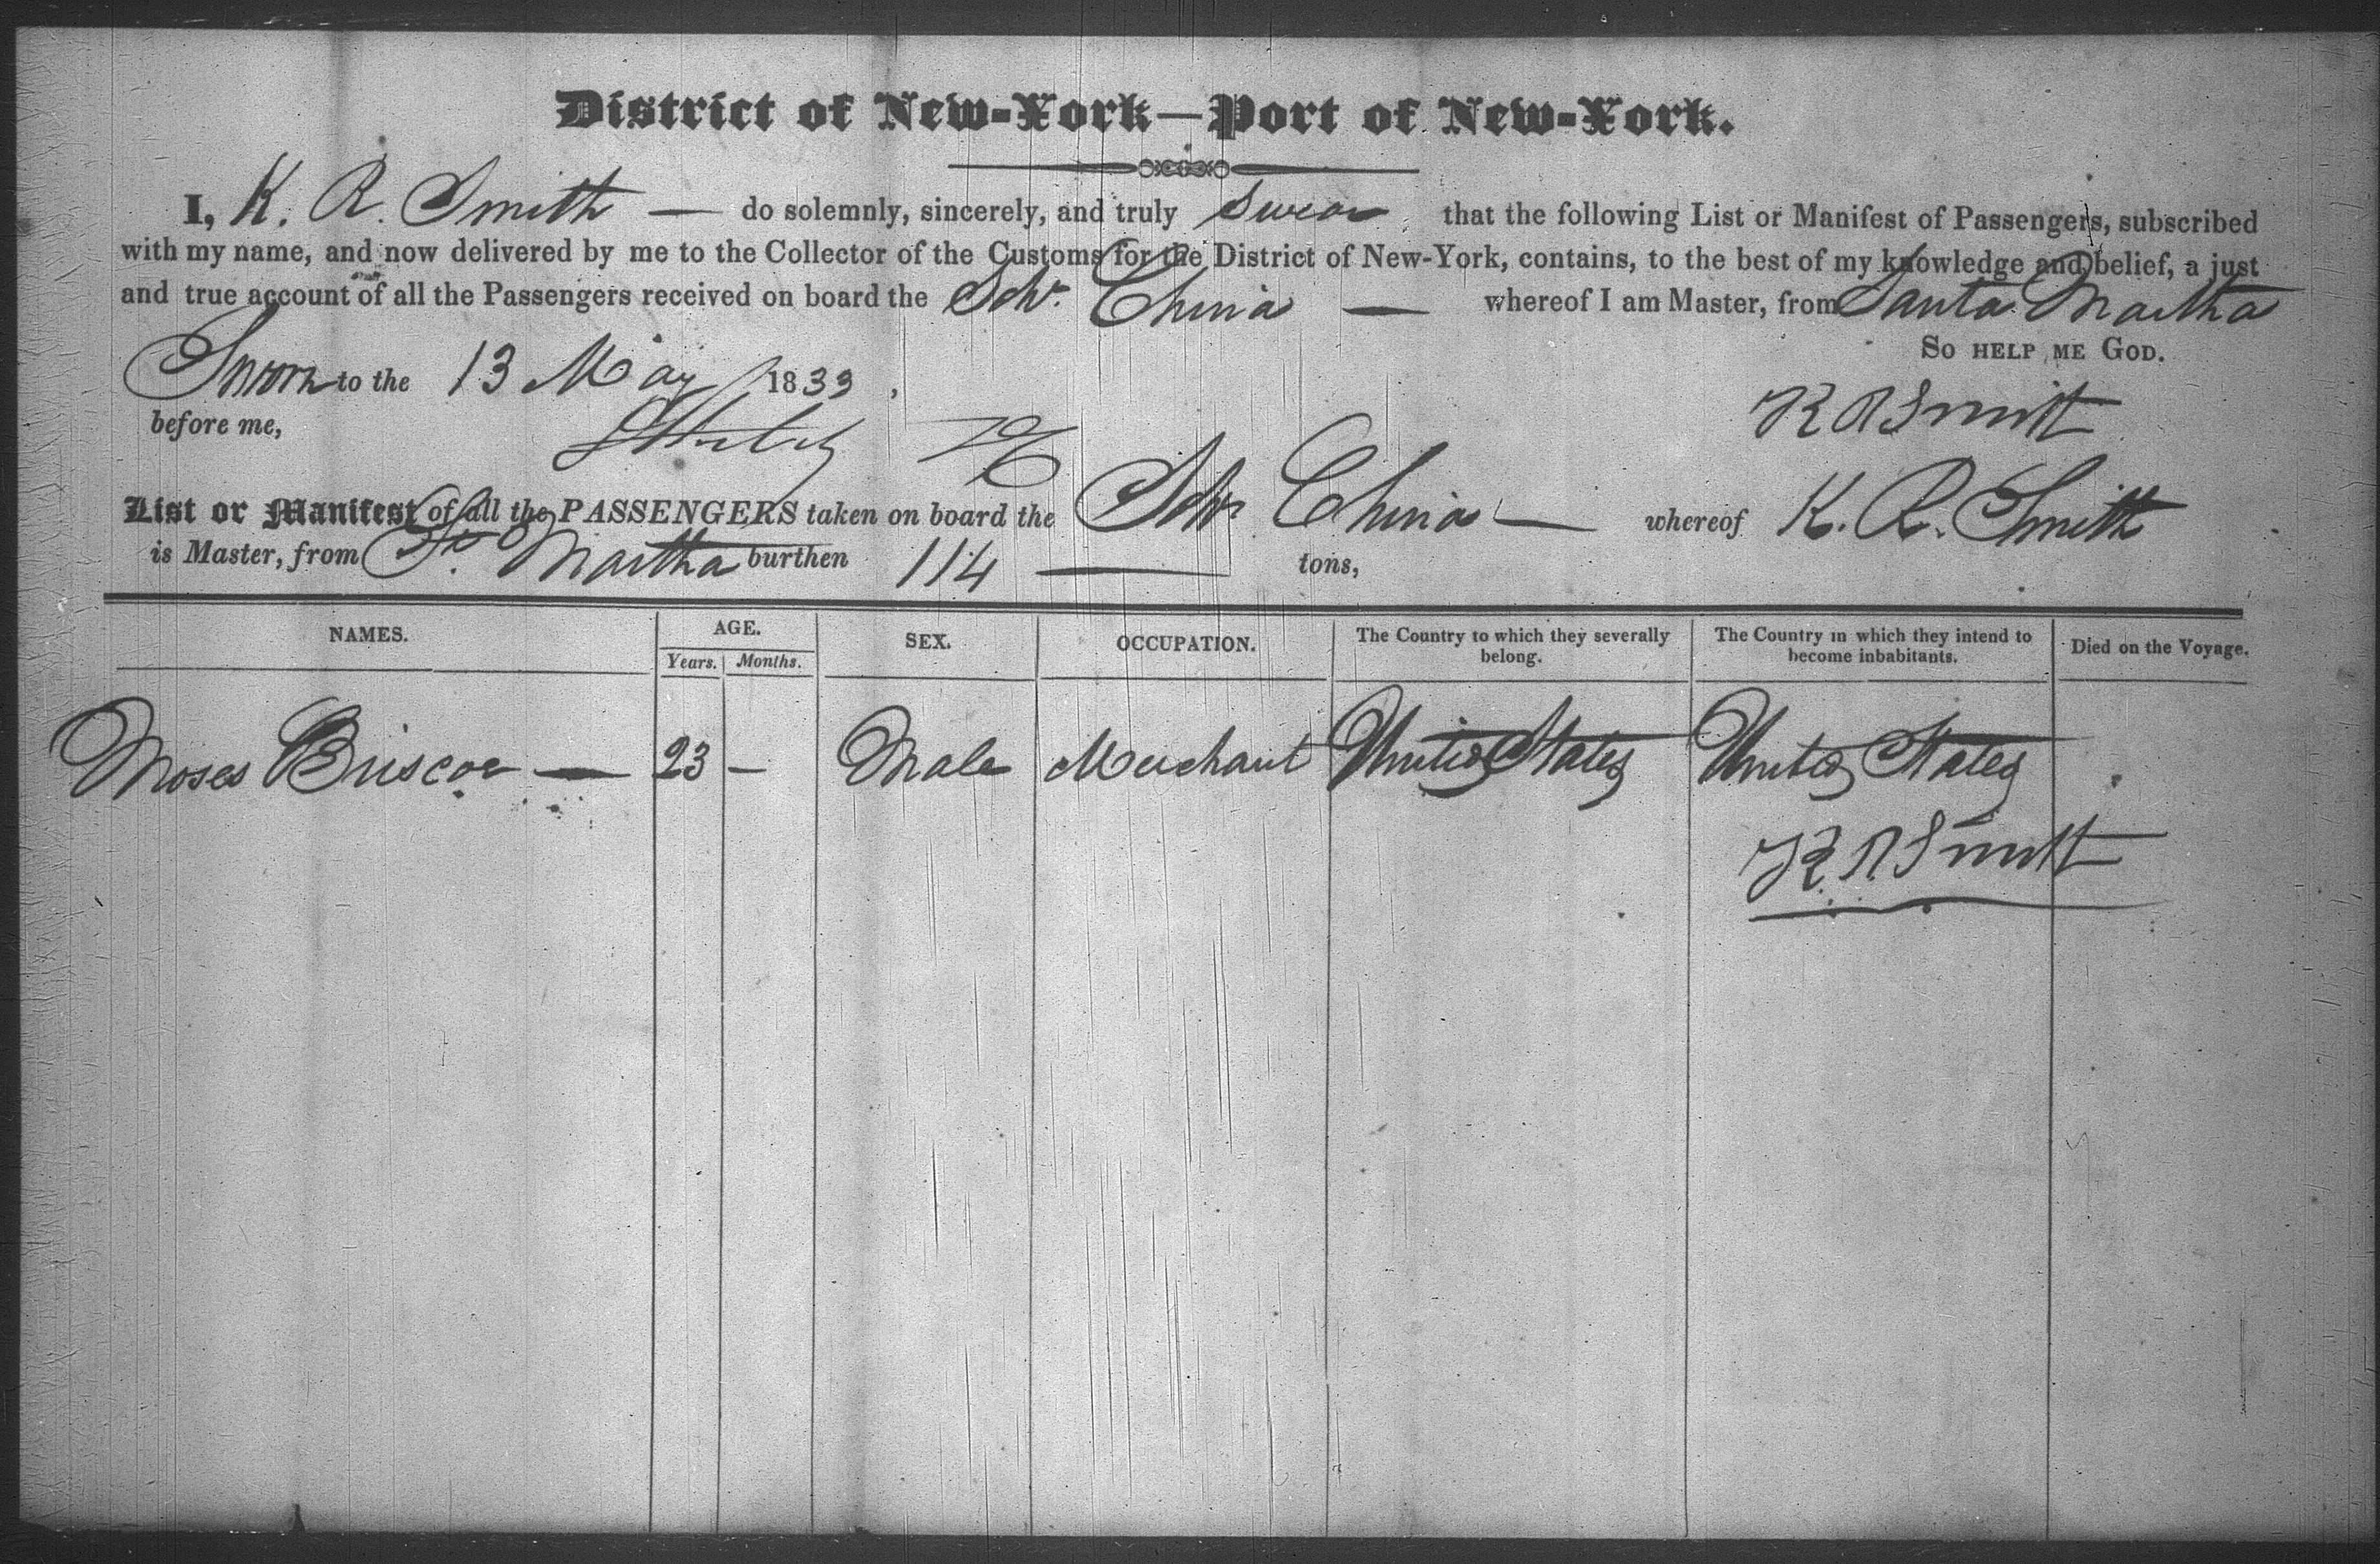 District of New-York—Port of New-York.
I, K. R. Smith — do solemnly, sincerely, and truly swear that the following List or Manifest of Passengers, subscribed
with my name, and now delivered by me to the Collector of the Customs for the District of New-York, contains, to the best of my knowledge and belief, a just
and true account of all the Passengers received on board the Schr. China — whereof I am Master, from Santa Martha
So help me God.
Sworn to the 13 May 1833,
before me,
K R Smith
List or Manifest of all the PASSENGERS taken on board the Schr China — whereof K. R. Smith
is Master, from Sta. Martha burthen 114 — tons,
NAMES. AGE. SEX. OCCUPATION. The Country to which they severally belong. The Country in which they intend to become inhabitants. Died on the Voyage.
Years. Months.
Moses Briscoe — 23 — Male Merchant United States United States
K. R Smith